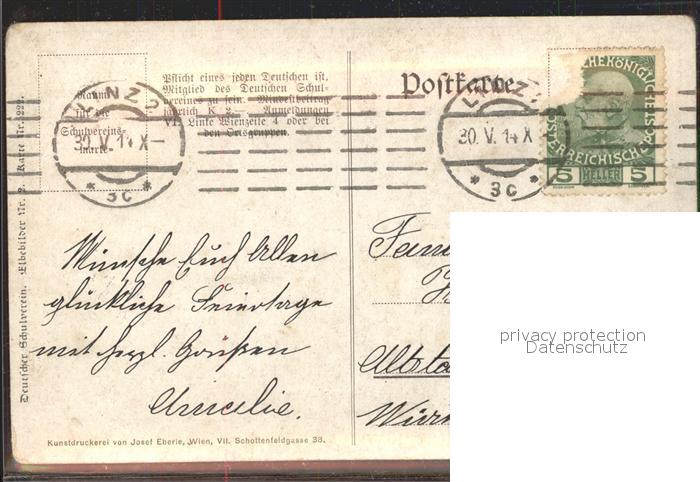 Raum
für die
Schulvereins-
marke
Pflicht eines jeden Deutschen ist,
Mitglied des Deutschen Schul-
vereines zu sein. Mindestbeitrag
jährlich K 2.— Anmeldungen
VI. Linke Wienzeile 4 oder bei
den Ortsgruppen.
LINZ 2
30.V.14 X–
* 3c *
Postkarte
LINZ 2
30.V.14 X
* 3c *
5 HELLER 5
Wünsche Euch Allen
glückliche Feiertage
mit herzl. Grüßen
Amalie.
Altsta
privacy protection
Datenschutz
Deutscher Schulverein. Elbebilder Nr. 2. Karte Nr. 222.
Kunstdruckerei von Josef Eberle, Wien, VII. Schottenfeldgasse 38.